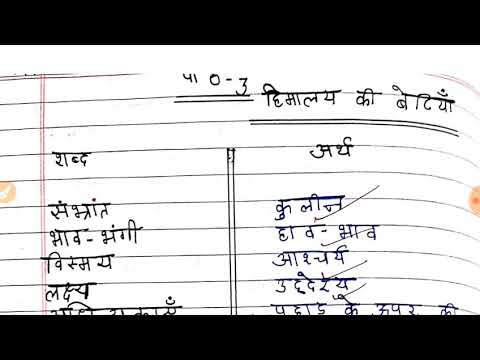 पा0-3
हिमालय की बेटियाँ
शब्द अर्थ
संभ्रांत कुलीन
भाव-भंगी हाव-भाव
विस्मय आश्चर्य
लक्ष्य उद्देश्य
पहाड़ के ऊपर की